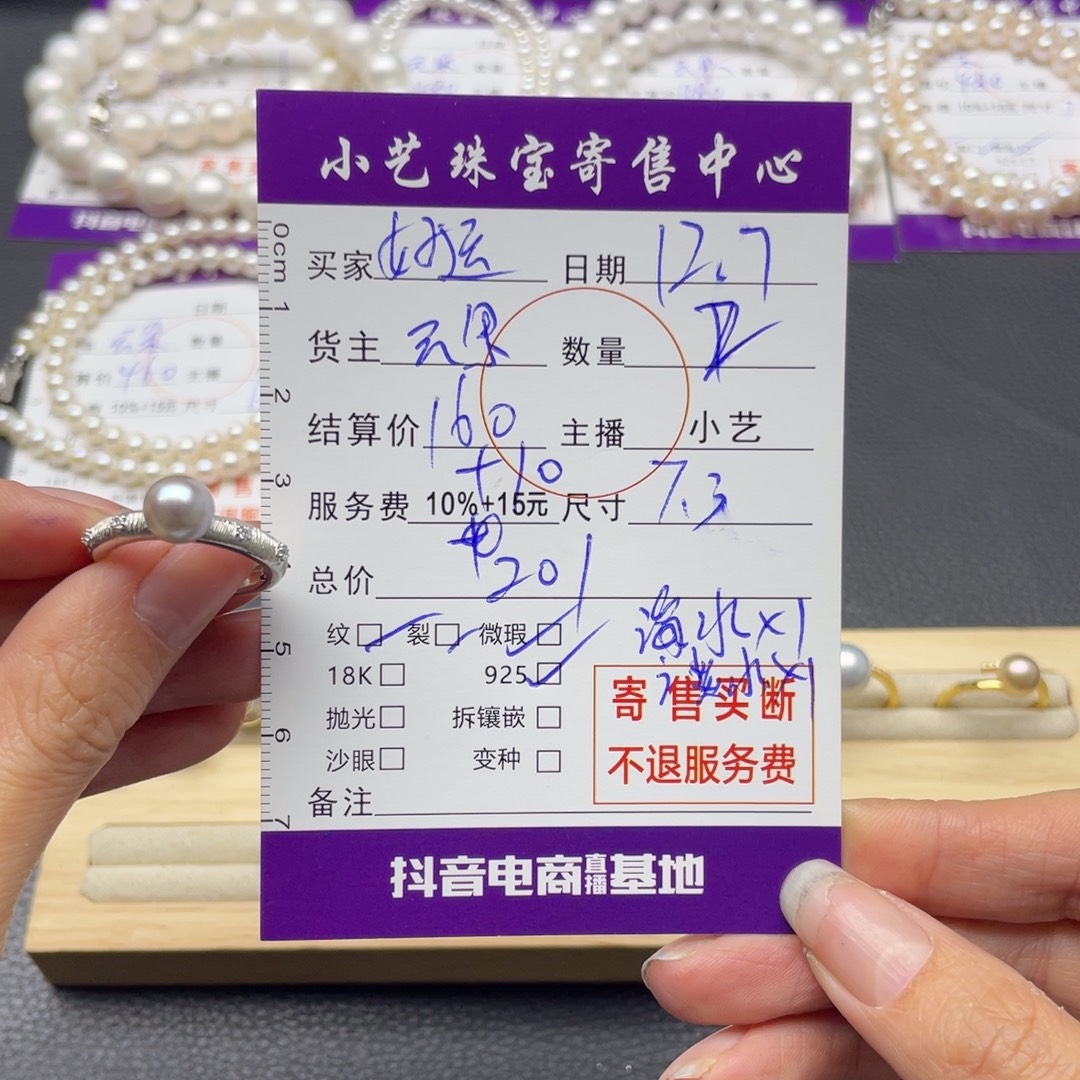 小艺珠宝寄售中心
0cm 1 2 3 5 6 7
买家 好运 日期 12.7
货主 云果 数量
结算价 160 主播 小艺
+10
服务费 10%+15元 尺寸 7.3
总价 201
纹□ 裂□ 微瑕□ 海水x1
18K□ 925□ 淡水x1
抛光□ 拆镶嵌□ 寄售买断
沙眼□ 变种□ 不退服务费
备注
抖音电商直播基地